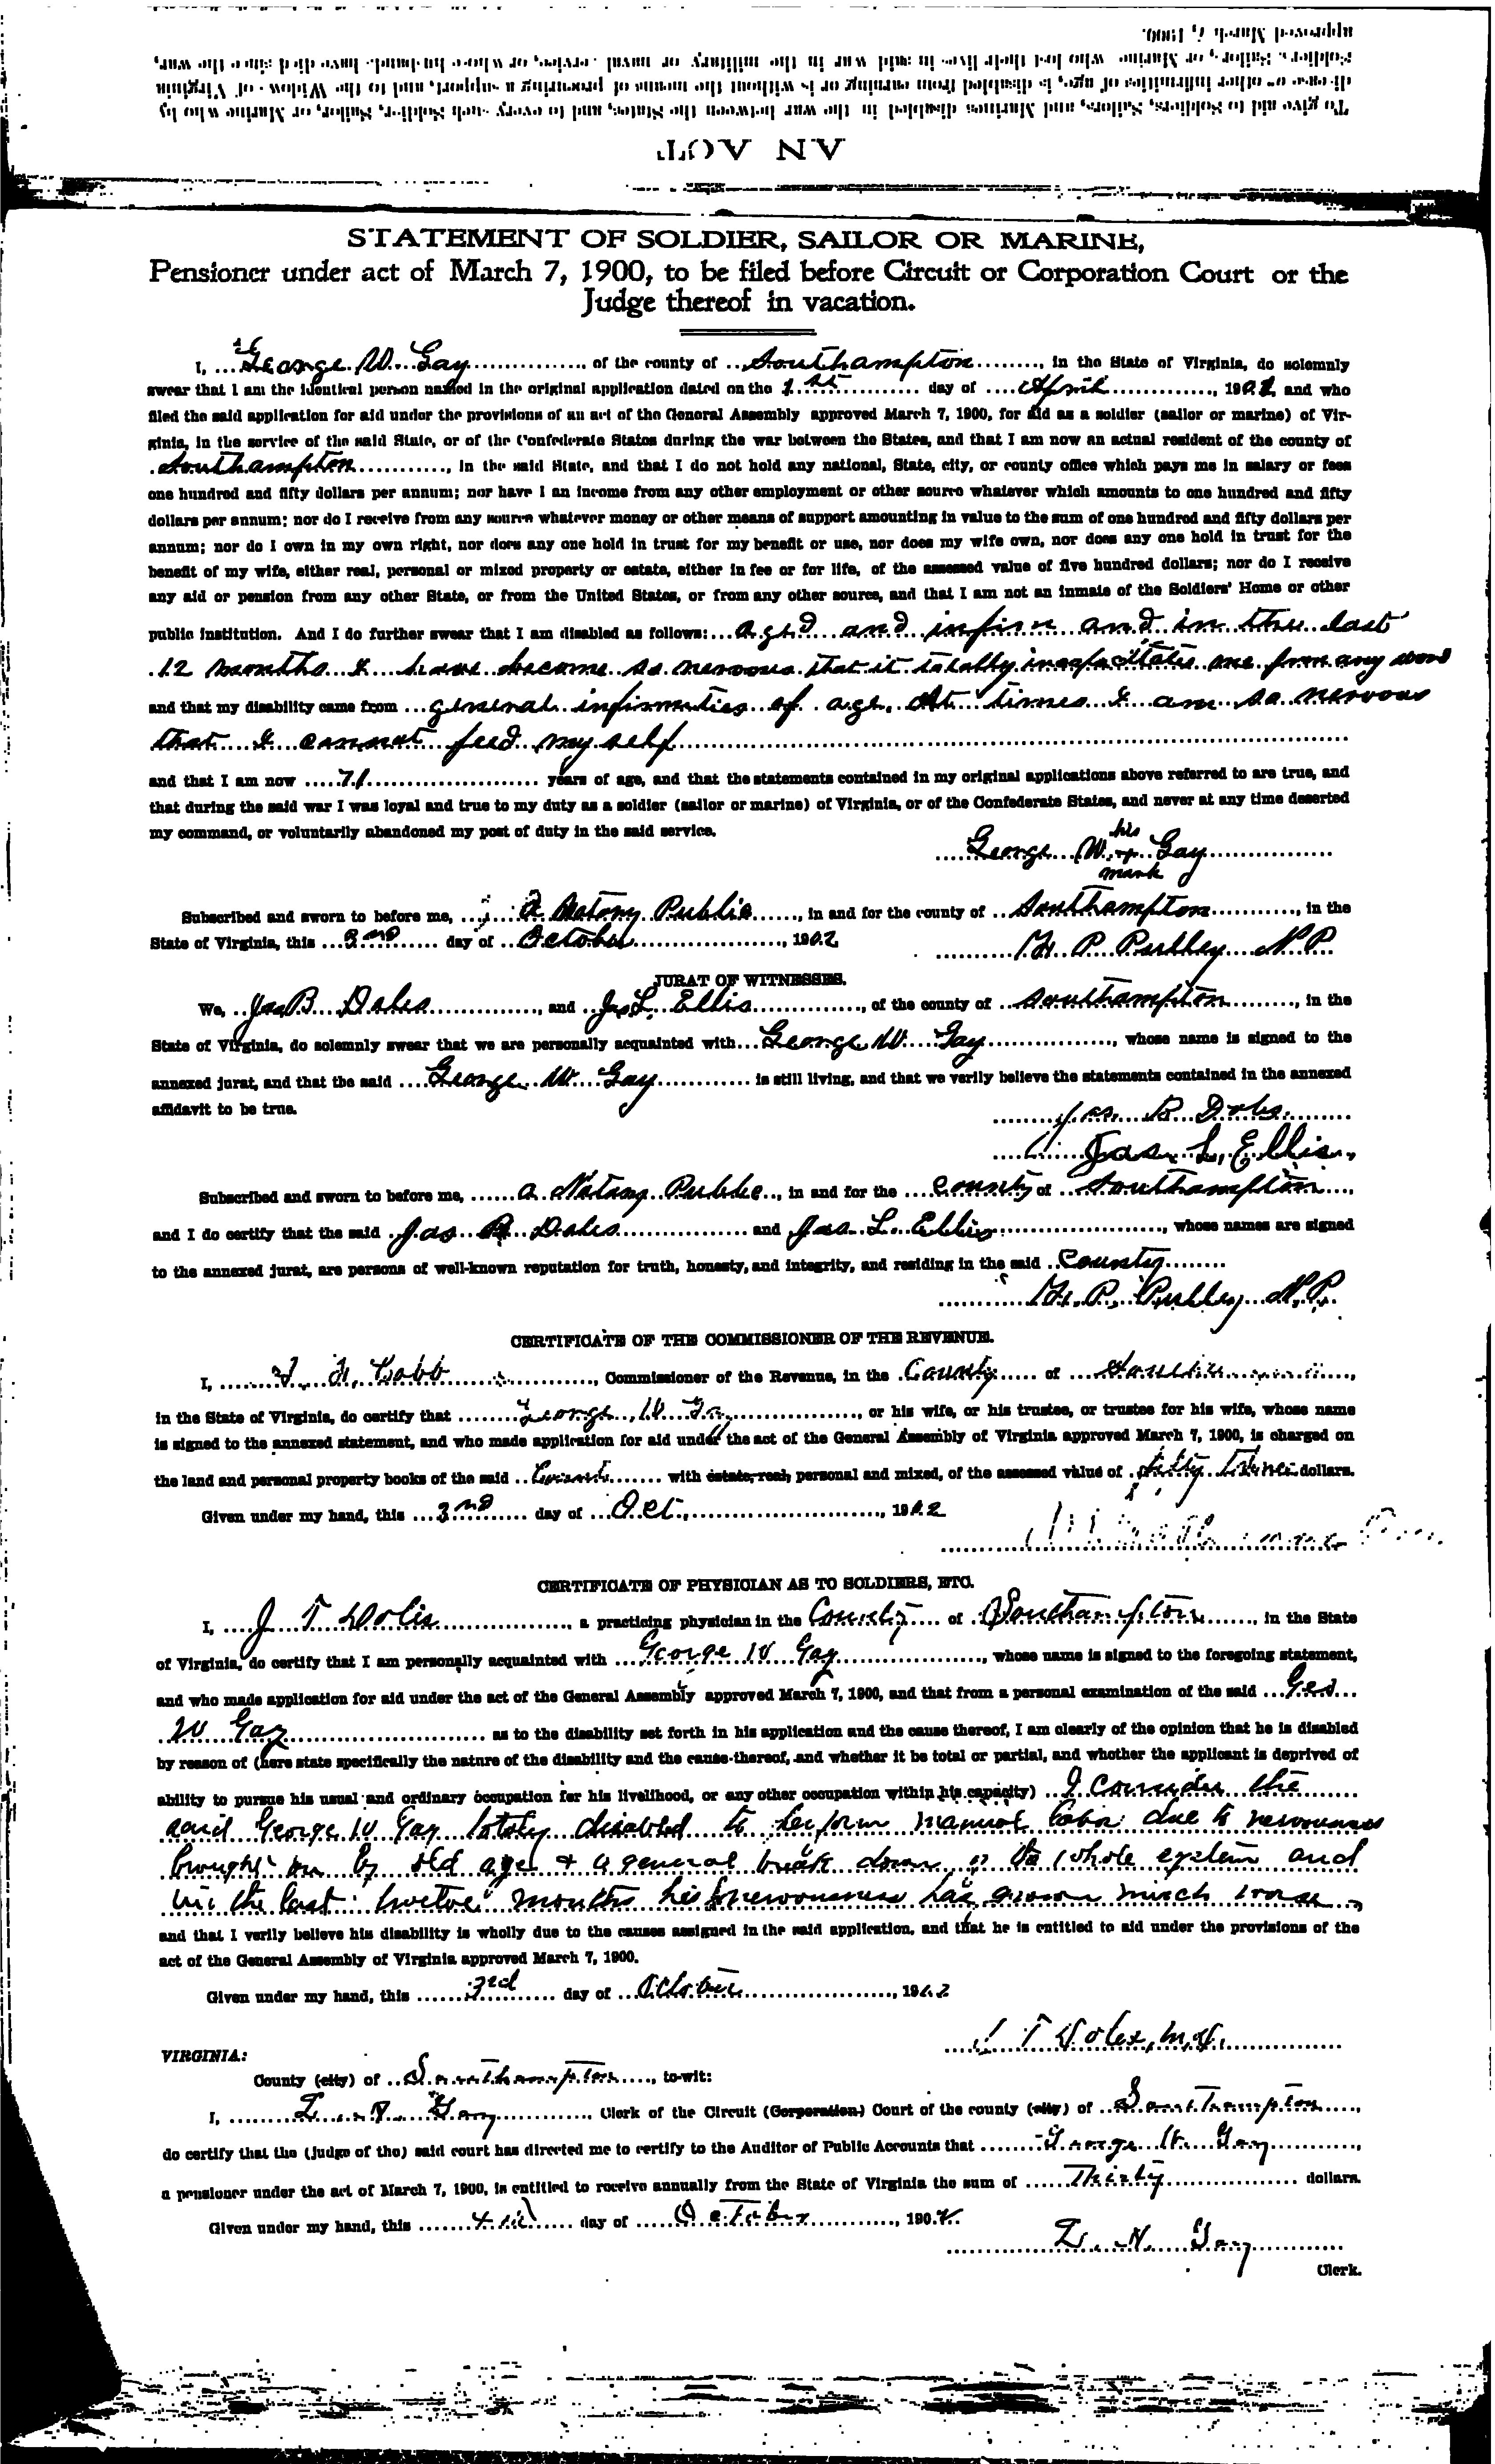 AN ACT
To give aid to Soldiers, Sailors, and Marines disabled in the war between the States, and to every such Soldier, Sailor, or Marine who by
disease or other infirmities of age, is disabled from earning or is without the means of procuring a support, and to the Widows of Virginia
Soldiers, Sailors, or Marines who lost their lives in said war in the military or naval service, or whose husbands have died since the war,
approved March 7, 1900.
STATEMENT OF SOLDIER, SAILOR OR MARINE,
Pensioner under act of March 7, 1900, to be filed before Circuit or Corporation Court or the
Judge thereof in vacation.
I, George W. Gay of the county of Southampton, in the State of Virginia, do solemnly
swear that I am the identical person named in the original application dated on the 1st day of April, 190, and who
filed the said application for aid under the provisions of an act of the General Assembly approved March 7, 1900, for aid as a soldier (sailor or marine) of Vir-
ginia, in the service of the said State, or of the Confederate States during the war between the States, and that I am now an actual resident of the county of
Southampton, in the said State, and that I do not hold any national, State, city, or county office which pays me in salary or fees
one hundred and fifty dollars per annum; nor have I an income from any other employment or other source whatever which amounts to one hundred and fifty
dollars per annum; nor do I receive from any source whatever money or other means of support amounting in value to the sum of one hundred and fifty dollars per
annum; nor do I own in my own right, nor does any one hold in trust for my benefit or use, nor does my wife own, nor does any one hold in trust for the
benefit of my wife, either real, personal or mixed property or estate, either in fee or for life, of the assessed value of five hundred dollars; nor do I receive
any aid or pension from any other State, or from the United States, or from any other source, and that I am not an inmate of the Soldiers' Home or other
public institution. And I do further swear that I am disabled as follows: aged and infirm and in the last
12 months I have become so nervous that it totally incapacitates me from any work
and that my disability came from general infirmities of age. At times I am so nervous
that I cannot feed my self
and that I am now 71 years of age, and that the statements contained in my original applications above referred to are true, and
that during the said war I was loyal and true to my duty as a soldier (sailor or marine) of Virginia, or of the Confederate States, and never at any time deserted
my command, or voluntarily abandoned my post of duty in the said service.
his
George W. + Gay
mark
Subscribed and sworn to before me, a Notary Public, in and for the county of Southampton, in the
State of Virginia, this day of October, 1902
P. N.P.
JURAT OF WITNESSES.
We, Jas B Doles, and Jas L. Ellis, of the county of Southampton, in the
State of Virginia, do solemnly swear that we are personally acquainted with George W. Gay, whose name is signed to the
annexed jurat, and that the said George W. Gay is still living, and that we verily believe the statements contained in the annexed
affidavit to be true.
Jas. B Doles.
Jas. L. Ellis.
Subscribed and sworn to before me, a Notary Public, in and for the county of Southampton,
and I do certify that the said Jas B Doles and Jas L. Ellis, whose names are signed
to the annexed jurat, are persons of well-known reputation for truth, honesty, and integrity, and residing in the said County
P. N.P.
CERTIFICATE OF THE COMMISSIONER OF THE REVENUE.
I, Cobb, Commissioner of the Revenue, in the County of
in the State of Virginia, do certify that George W Gay, or his wife, or his trustee, or trustee for his wife, whose name
is signed to the annexed statement, and who made application for aid under the act of the General Assembly of Virginia approved March 7, 1900, is charged on
the land and personal property books of the said County with estate, real, personal and mixed, of the assessed value of dollars.
Given under my hand, this 3nd day of Oct., 1902
CERTIFICATE OF PHYSICIAN AS TO SOLDIERS, ETC.
I, J T Doles, a practicing physician in the County of Southampton, in the State
of Virginia, do certify that I am personally acquainted with George W Gay, whose name is signed to the foregoing statement,
and who made application for aid under the act of the General Assembly approved March 7, 1900, and that from a personal examination of the said Geo
W Gay as to the disability set forth in his application and the cause thereof, I am clearly of the opinion that he is disabled
by reason of (here state specifically the nature of the disability and the cause thereof, and whether it be total or partial, and whether the applicant is deprived of
ability to pursue his usual and ordinary occupation for his livelihood, or any other occupation within his capacity) I consider the
said George W Gay totaly disabled to perform manual labor due to nervousness
brought on by old age & a general break down of the whole system and
in the last twelve months his nervousness has grown much worse,
and that I verily believe his disability is wholly due to the causes assigned in the said application, and that he is entitled to aid under the provisions of the
act of the General Assembly of Virginia approved March 7, 1900.
Given under my hand, this 3rd day of October, 1902
J T Doles, M.D.
VIRGINIA:
County (city) of Southampton, to-wit:
I, Gay, Clerk of the Circuit (Corporation) Court of the county (city) of Southampton,
do certify that the (judge of the) said court has directed me to certify to the Auditor of Public Accounts that George W. Gay,
a pensioner under the act of March 7, 1900, is entitled to receive annually from the State of Virginia the sum of Thirty dollars.
Given under my hand, this day of October, 1902.
Gay
Clerk.